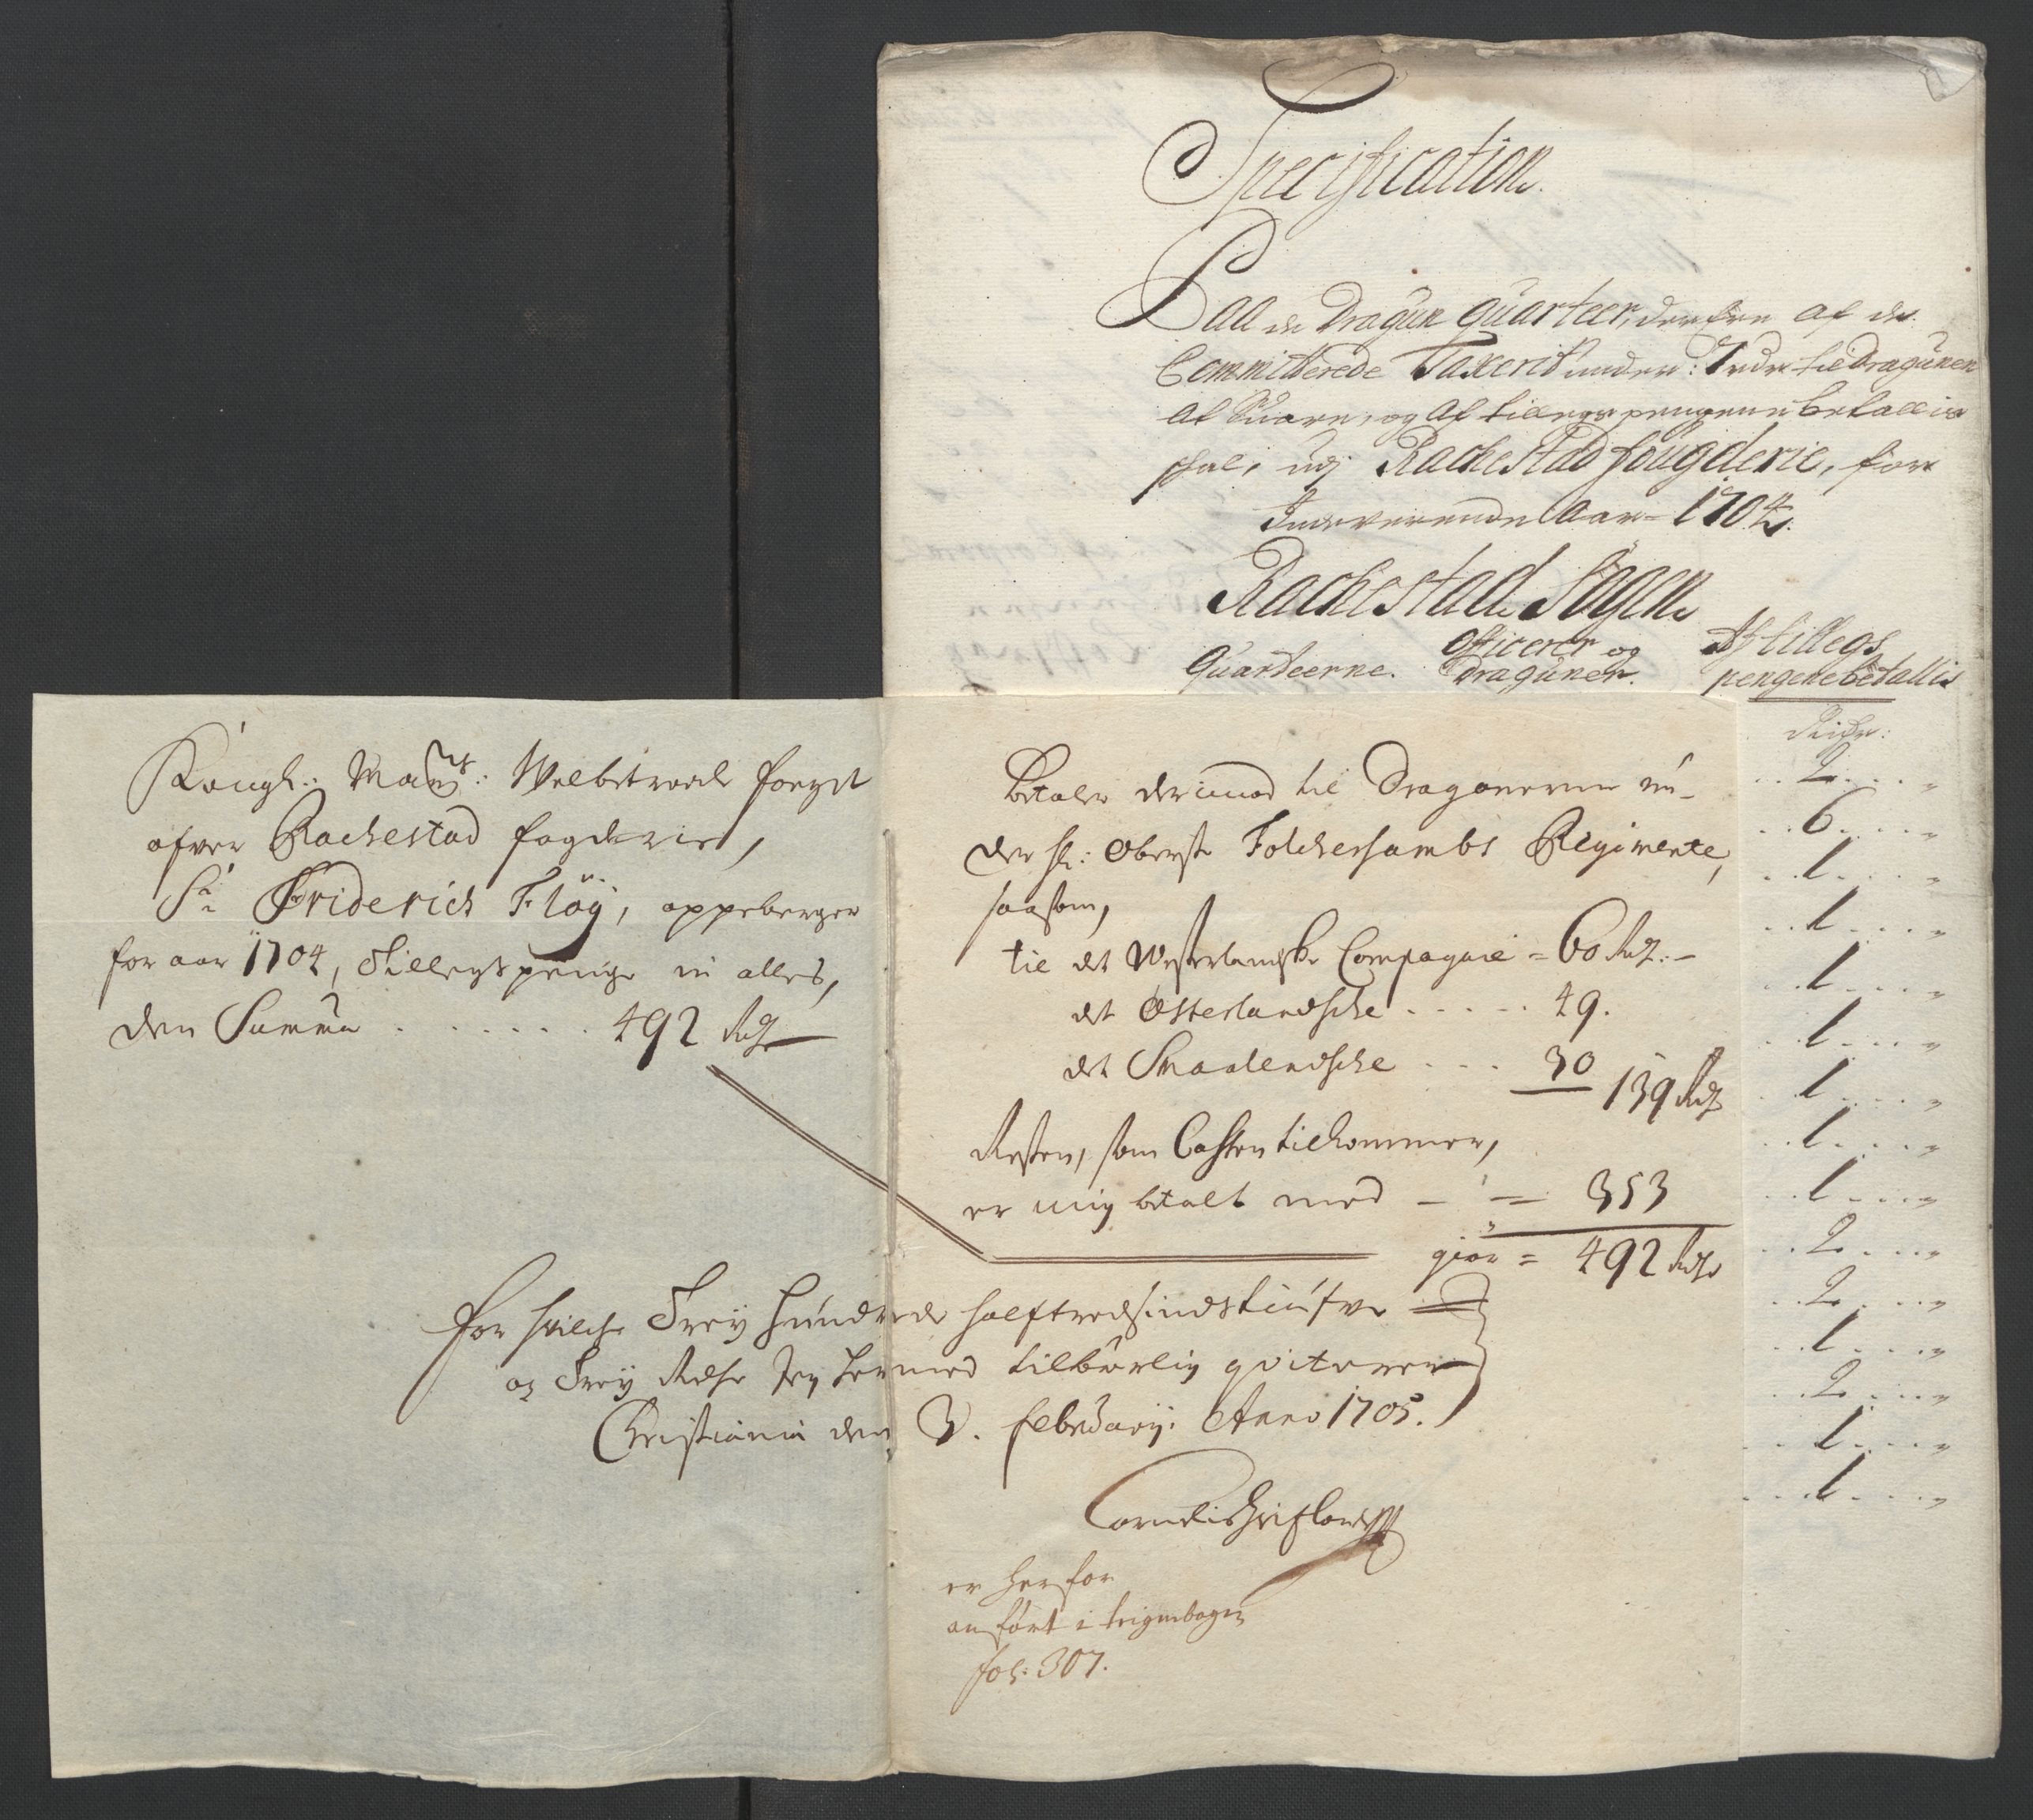 Specification
Paa de Dragun quarteer, der ere af de
Committerede Taxerit under: 7 rdr til Dragunen
at Svare, og af tillegs pengene betallis
skal, udj Rachestad fougderie, for
Indeverende Aar 1704.
Rachestad Sogen
Quarteerne. Officerer og Draguner. Af tillegs pengene betallis
Rixdr:
2
6
1
1
1
1
1
1
1
2
2
1
2
1
1
Kongl: Mayts: Welbetroede fogd
ofver Rachestad fogderie,
Sr Friderich Fløÿ, oppeberger
for aar 1704, Tillegspenge in alles,
den Summa . . . . . . . 492 Rdr
Betaler derimod til Dragonerne un-
der Hr: Oberst Folckersambs Regimente,
saasom,
til det Westerlendske Compagnie = 60 Rdr. -
det Osterlandsche . . . . . 49.
det Smaalendsche . . . 30
139 Rdr
Resten, som Cassen tilkommer,
er mig betalt med - = 353
giør = 492 Rdr
for hvilche Treÿ hundrede halftredsindstiufve
og Treÿ Rdr Jeg hermed tilbørlig qviterer
Christiania den 3. Februarÿ. Anno 1705.
er herfor
anført i krigsbogen
fol: 307.